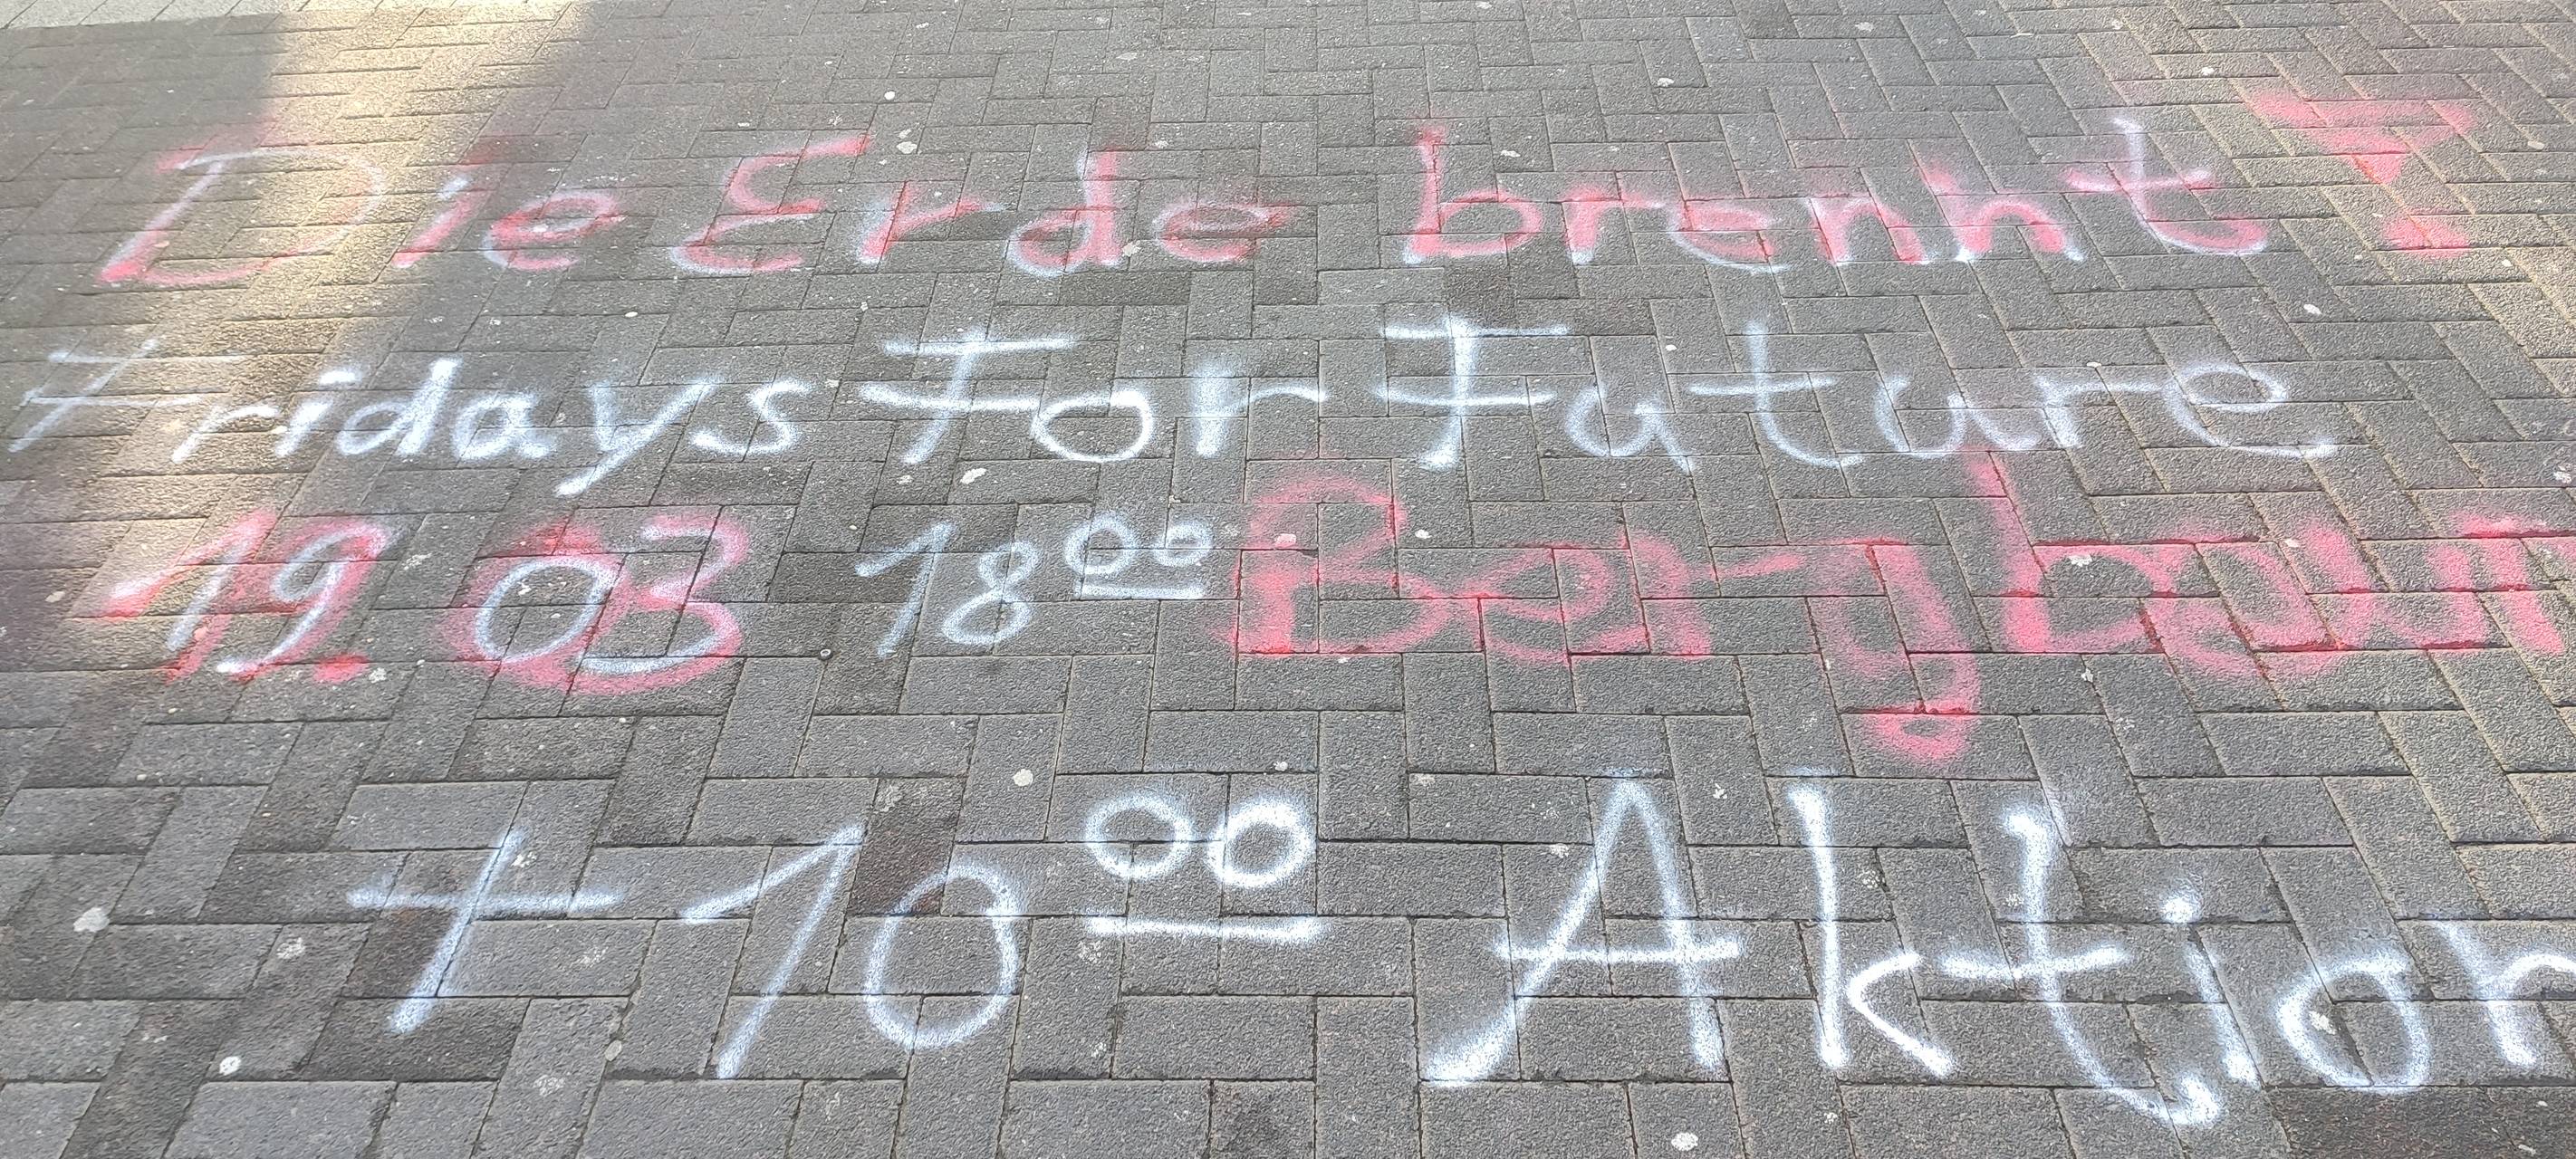 Die Erde brennt!
Fridays For Future
19.03 18⁰⁰ Bergbau
+ 10⁰⁰ Aktion